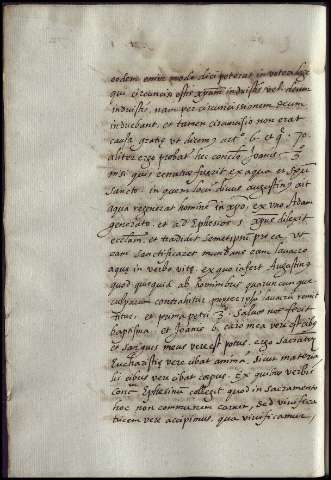 eodem enim modo dici poterat in veteri lege
qui circuncisi estis xpum induistis vel deum
induistis, nam per circuncissionem deum
induebant, et tamen circuncisio non erat
causa gratię ut diximus art.º 6 et q. 70.
aliter ergo probat hec conclusio Joanis 3.
nisi quis renatus fuerit ex aqua et spiritu
sancto. in quem locum divus augustinus ait
aqua regenerat hominem in xpo, ex uno Adam
generato, et ad Ephesios 5 xpus dilexit
ecclesiam, et tradidit semetipsum pro ea ut
eam sanctificaret mundans eam lavacro
aquę in verbo vitę, ex quo infert Augustinus
quod quęquid ab hominibus quacuncunque
culparum contrahitur per lavacrum remit
titur, et prima petri 3. Salvos nos fecit
baptisma: et Joanis 6. caro mea vere est cibus
et sanguis meus vere est potus. ergo sacramentum
Eucharistię vere cibat animam, sicut materia
lis cibus vere cibat corpus. Ex quibus verbis
Concilium Ephesinum collegit quod in sacramento
hoc non communem carnem, sed vivifica
tricem vere accipimus, qua vivificamur,